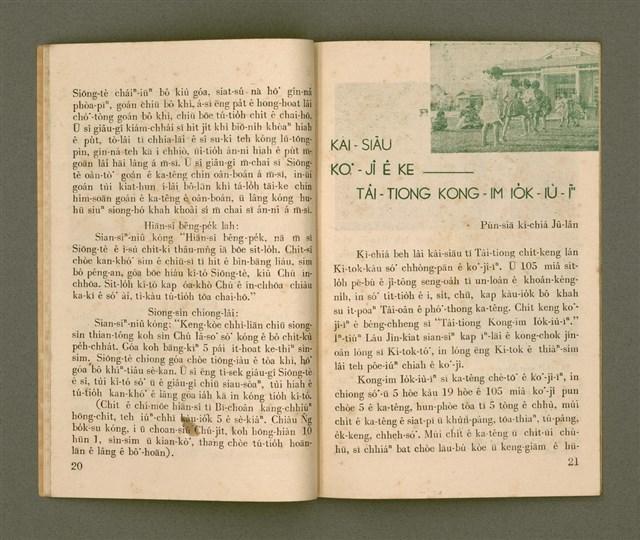 Siōng-tè cháiⁿ-iūⁿ bô kiú góa, siat-sú nà hō͘ gín-ná
phòa-pīⁿ, goán chiū bô khì, á-sī ēng pa̍t ê hong-hoat lâi
chó͘-tòng goán bô khì, chiū bōe tú-tio̍h chit ê chai-hō.
Ū sî giâu-gî kiám-chhái sī hit ji̍t khì biō-nih khòaⁿ hiah
ê pu̍t, tò-lâi tī chhia-lāi ê sî su-ki teh kóng lū-tông-
pin, gín-ná teh kā i chhiò, ūi-tio̍h án-ni hiah ê pu̍t m̄-
goān lâi hāi lâng á m̄-sī. Ū sî giâu-gî m̄-chai sī Siōng-
tè oàn-tò͘ goán ê ka-têng chin oân-boán á m̄-sī, in-ūi
goán tùi kiat-hun í-lâi bô-lūn khì tá-lo̍h tāi-ke chin
him-soān goán ê ka-têng ê oân-boán, ū lâng kóng hu-
hū siuⁿ siong-hó khah khoài sí m̄ chai sī án-ni á m̄-sī.
Hiān-sî bêng-pe̍k lah:
Sian-siⁿ-niû kóng "Hiān-sî bêng-pe̍k, nā m̄ sī
Siōng-tè ê ì-sù chi̍t-ki thâu-mn̂g iā bōe sit-lo̍h. Chit-sî
chòe kan-khó͘ sim ê chiū-sī tī hit ê bīn-bāng lāu, sim
bô pêng-an, góa bōe hiáu kî-tó Siōng-tè, kiû Chú in-
chhōa. Sit-lo̍h kî-tó kap óa-khò Chú ê ín-chhōa chiàu
ka-kī ê só͘ ài, tì-kàu tú-tio̍h tōa chai-hō."
Siong-sìn chiong-lâi:
Sian-siⁿ-niû kóng: "Keng-kòe chhi-liān chiū siong-
sìn thian-tông koh sìn Chú Iâ-so͘ só͘ kóng ê bô chi̍t-kù
pe̍h-chha̍t. Góa koh bāng-kìⁿ 5 pái it-hoat ke-thiⁿ sìn-
sim. Siōng-tè chiong góa chòe tiòng-iâu ê thāu khì, hō͘
góa bô khiⁿ-tiâu sè-kan. Ū sî ēng tì-sek giâu-gî Siōng-tè
ê sî, tùi kî-tó só͘ ū ê giâu-gî chiū siau-sòaⁿ, tùi hiah ê
tú-tio̍h kan-khó͘ ê lâng góa iáh kā in kóng tio̍h kî-tó.
(Chit ê chí-moe hiān-sî tī Bi-choân kang-chhiúⁿ
hōng-chit, teh iúⁿ-chhī kàn-io̍k 5 ê sè-kiáⁿ. Chiàu Ňg
bo̍k-su kóng, i ū choan-siú Chú-ji̍t, koh hōng-hiàn 10
hūn 1, sìn-sim ū kian-kò͘, thang chòe tú-tio̍h hoān-
lān ê lâng ê bô͘-hoān).
20
KAI-SIĀU
KO͘-JÎ Ê KE
TÂI-TIONG KONG-IM IO̍K-IÙ-Īⁿ
Pún-siā kì-chiá Jū-lân
Kì-chiá beh lâi kài-siāu tī Tâi-tiong chit-keng lán
Ki-tok-kàu só͘ chhòng-pān ê ko͘-jî-īⁿ. Ū 105 miâ sit-
lo̍h pē-bú ê jî-tông seng-oa̍h tī un-loán ê khoân-kéng-
nih, in só͘ tit-tio̍h ê i, si̍t, chū, kap kàu-io̍k bô khah
su it-poaⁿ Tâi-oân ê phó͘-thong ka-têng. Chit keng ko͘-
jî-īⁿ ê bêng-chheng sī "Tâi-tiong Kong-im Io̍k-iù-īⁿ."
Īⁿ-tiúⁿ Lâu Jîn-kiat sian-siⁿ kap iⁿ-lāi ê kong-chok jîn-
oân lóng sī Ki-tok-tô͘, in lóng ēng Ki-tok ê thiàⁿ-sim
lâi teh pôe-iúⁿ chiah ê ko͘-jî.
Kong-im Io̍k-iù-īⁿ sī ka-têng chè-tō͘ ê ko͘-jî-īⁿ, in
chiong só͘-ū 5 hòe kàu 19 hòe ê 105 miâ ko͘-jî pun
chòe 5 ê ka-têng, hun-phòe tòa tī 5 tòng ê chhù, múi
chit ê ka-têng ê siat-pī ū khùⁿ-pâng, tòa-thiaⁿ, tû-pâng,
e̍k-keng, chheh-só͘. Múi chit ê ka-têng ū chi̍t-ūi chú-
hū, sī chhiáⁿ bat chòe láu-bú kòe ū keng-giām ê hū-
21